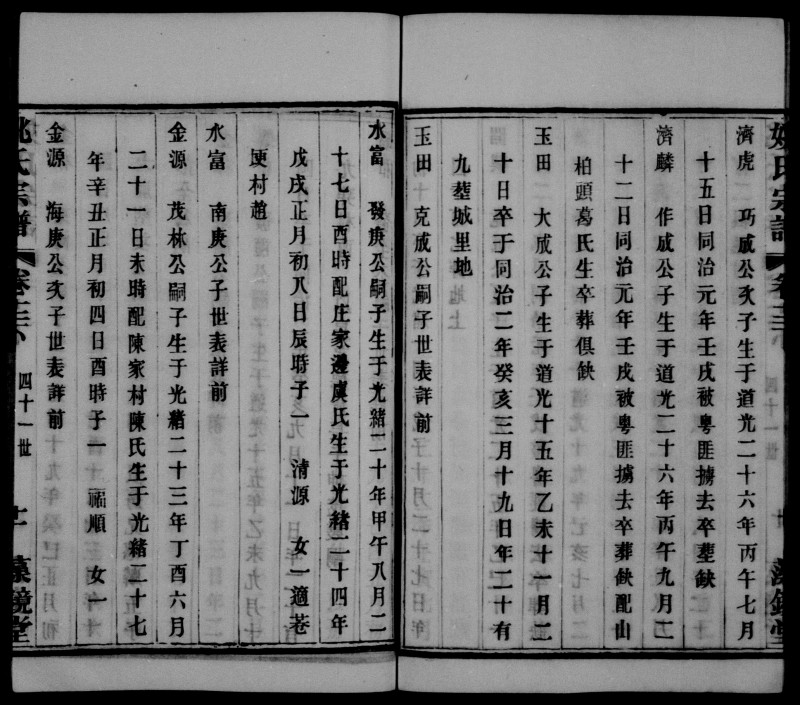 氏宗譜 卷 四十一世 鏡堂
濟虎 巧成公次子生于道光二十六年丙午七月
十五日同治元年壬戌被粵匪擄去卒塟缺
濟麟 作成公子生于道光二十六年丙午九月二
十二日同治元年壬戌被粵匪擄去卒葬缺配山
柏頭葛氏生卒葬俱缺
玉田 大成公子生于道光十五年乙未十一月二
十日卒于同治二年癸亥三月十九日年二十有
九塟城里地
玉田 克成公嗣子世表詳前
水富 發庚公嗣子生于光緒二十年甲午八月二
十七日酉時配庄家邊虞氏生于光緒二十四年
戊戌正月初八日辰時子一 清源 女一適巷
更村趙
水富 南庚公子世表詳前
金源 茂林公嗣子生于光緒二十三年丁酉六月
二十一日未時配陳家村陳氏生于光緒二十七
年辛丑正月初四日酉時子一 福順 女一
金源 海庚公次子世表詳前
姚氏宗譜 卷 四十一世 十一 藻鏡堂